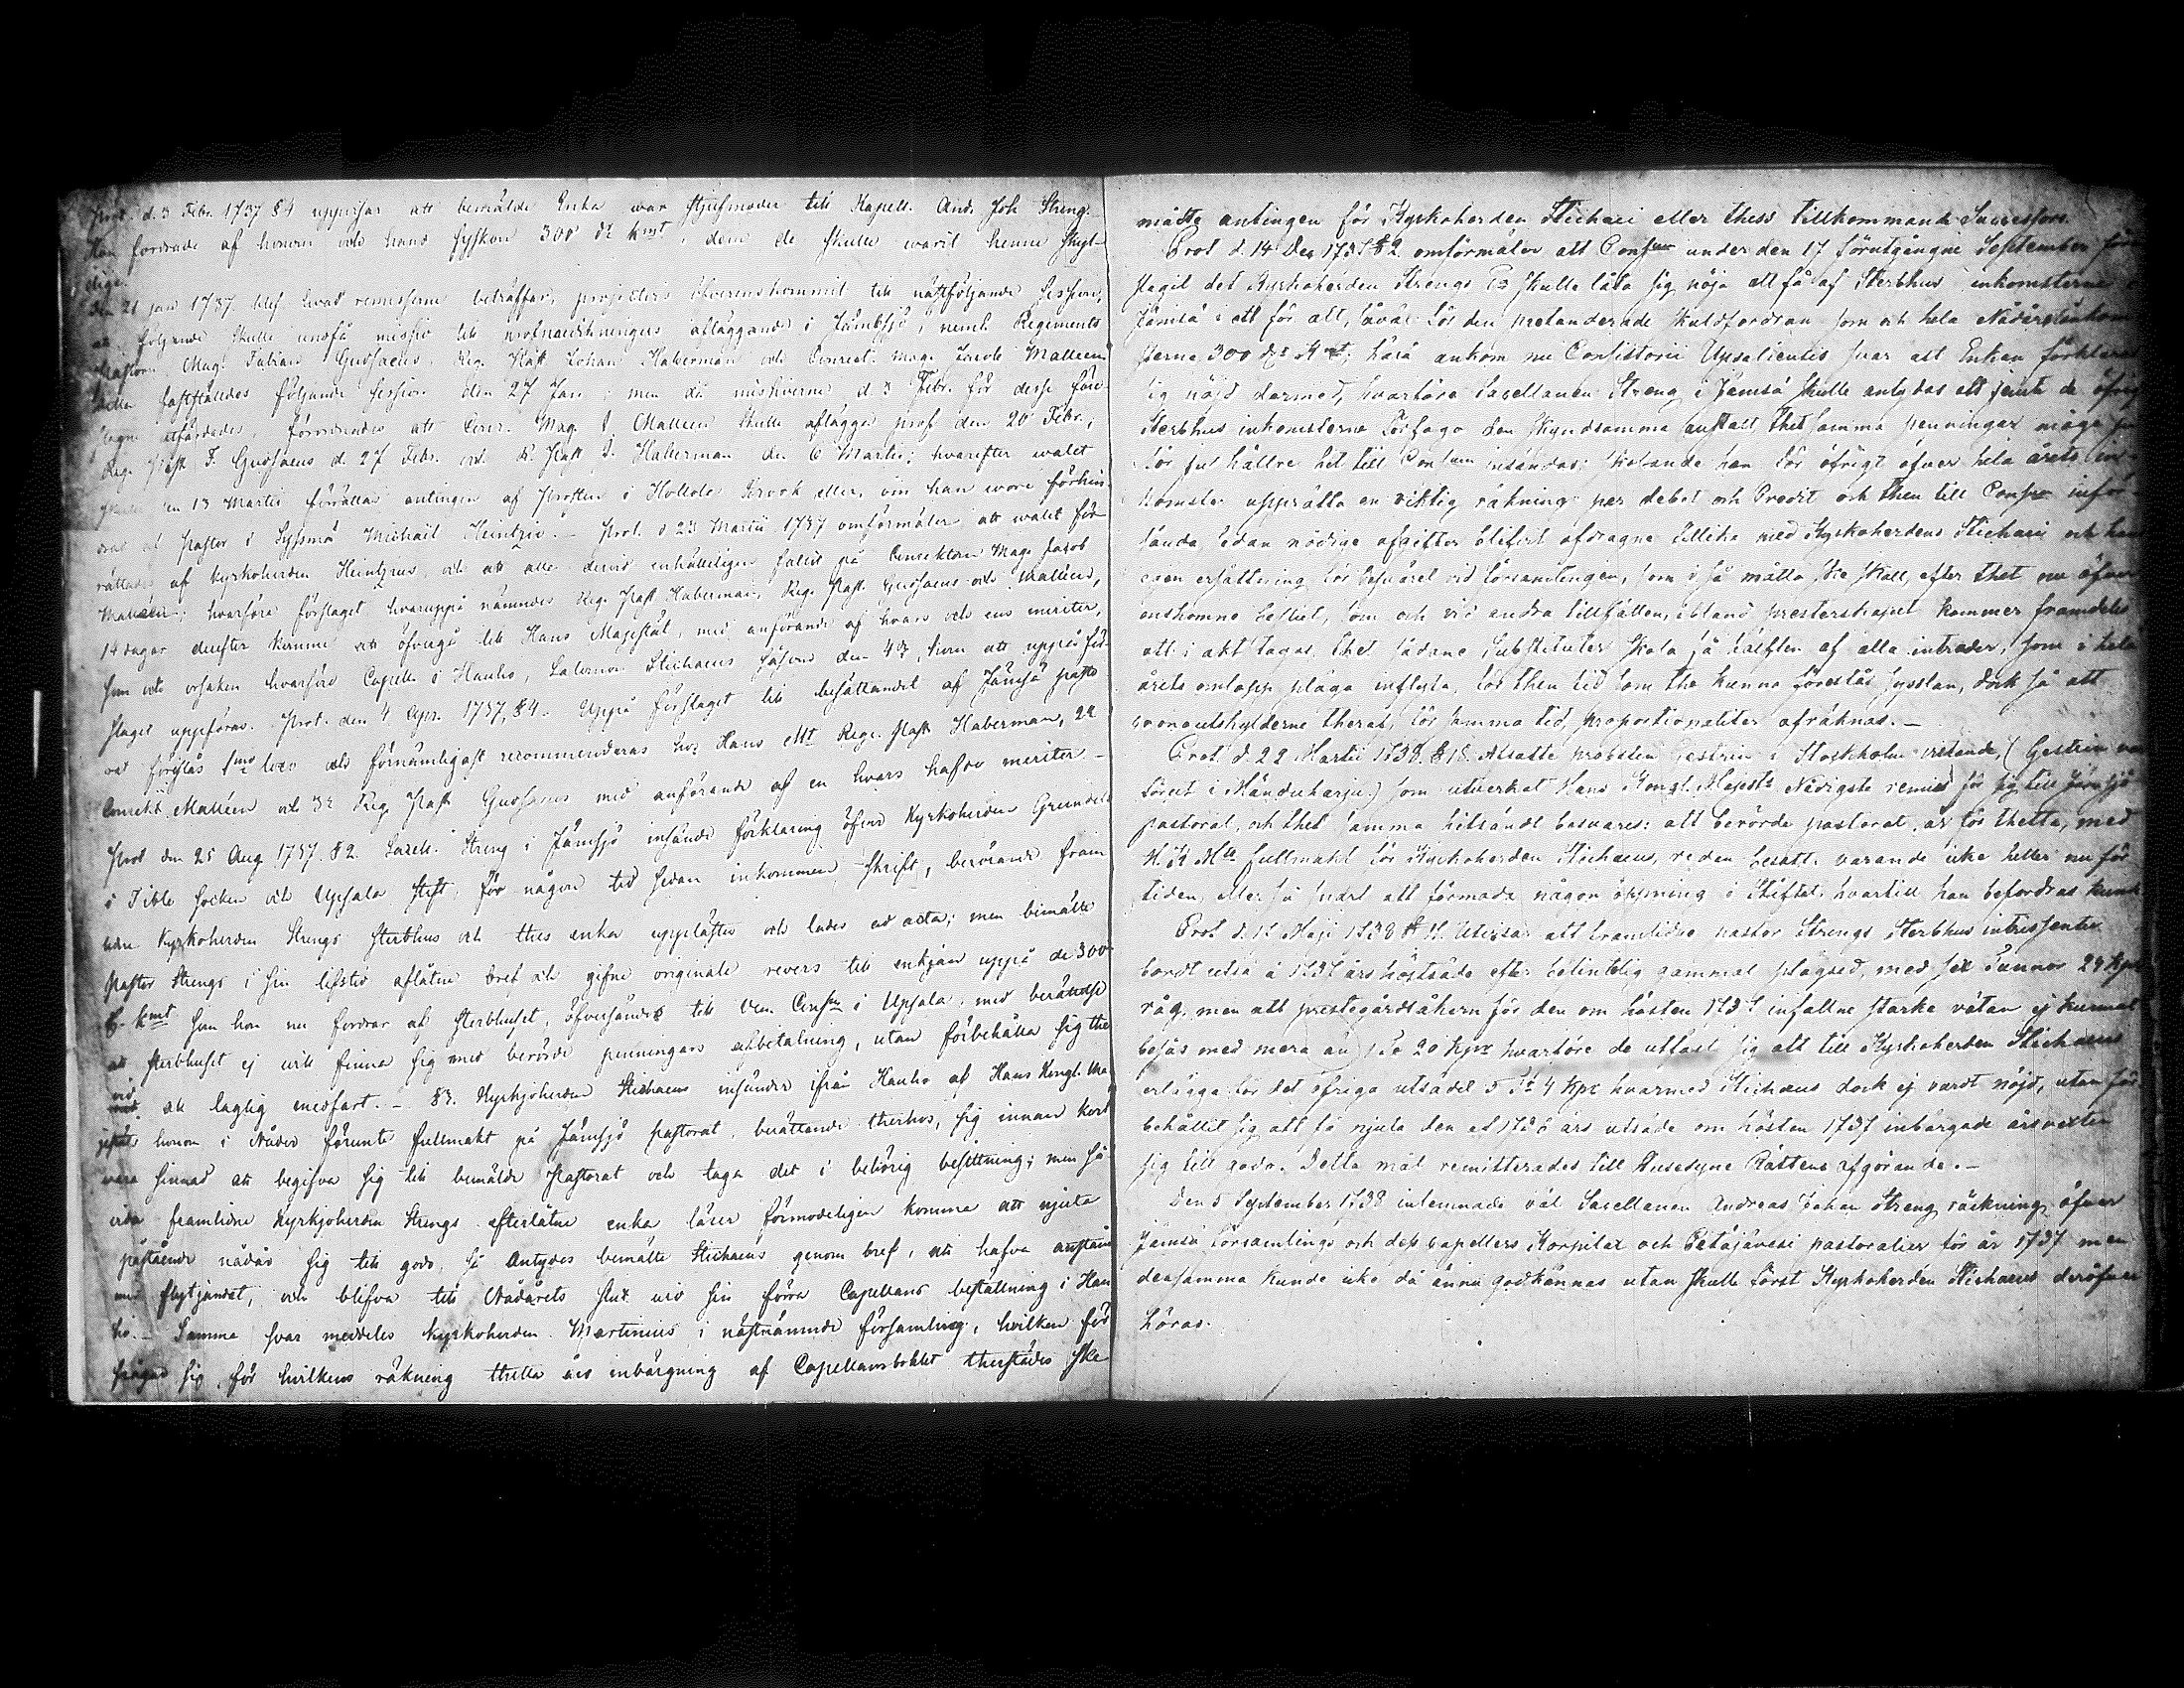 Prot. d. 3 Febr. 1737 §4 uppvisar att bemälde Enka war stjufmoder till Kapell. And. Joh. Streng.
Hon fordrade af honom och hans syskon 300 dr kmt, dem de skulle warit henne skyl-
dige.
Den 21 jan 1737 blef hvad remisserne beträffar, projecters öfverenskommit till nästföljande Session,
at följande skulle undfå missiv till profpredikningars afläggande i Jämbsjö, neml. Regiments
Pastorn Mag. Fabian Gudsaeus, Reg. Past Johan Haberman och Conrect. mag. Jacob Malleen
fastställdes följande Session den 27 Jan, men då missiverne d. 3 Febr. för desse före-
gagne utfärdades, förordnades att Conr. Mag. J. Malleen skulle aflägga prof den 20 Febr.;
Reg. Past F. Gudsaeus d. 27 Febr. och R. Past J. Haberman den 6 Martii; hvarefter walet
skulle den 13 Martii förrättas antingen af Prosten i Hollola Krook eller, om han wore förhin-
drad af Pastor i Sysmä Michaël Heintzie. - Prot. d 23 Martii 1737 omförmäler att walet för-
rättades af kyrkoherden Heintzius, och att alla dervid enhälleligen fallit på Conrektorn Mag. Jacob
Malleen; hvarföre förslaget hvaruppå nämndes Reg. Past Haberman, Reg. Past. Gudsaeus och Malleen,
14 dagar derefter kunne att öfvergå till Hans Majestät, med anförande af hvars och ens meriter,
som och orsaken hvarföre Capell. i Hauho, Salomon Stichaeus såsom den 4de, kom att uppå för-
slaget uppföras. Prot. den 4 Apr. 1737, §4. Uppå förslaget till besättandet af Jämsä pasto-
rat föreslås 1mo loco och förnämligast recommenderas hos Hans Mt Reg. Past Haberman, 2r
Conrekt Malleen och 3r Reg. Past Gudsaeus med anförande af en hvars hafde meriter -
Prot den 25 Aug 1737. §2. Sacell. Streng i Jämsjö insände förklaring öfver Kyrkoherden Grundels
i Tible socken och Upsala Stift, för någon tid sedan inkommen skrift, berörande fram-
ledne Kyrkoherden Strengs sterbhus och thes enka upplästes och lades ad acta; men bemälte
Pastor Strengs i sin lifstid aflåtne bref och gifne originale revers till enkjan uppå de 300
dr kmt som hon nu fordrar af sterbhuset, öfversändes till Ven Consm i Upsala, med berättelse
att sterbhuset ej will finna sig med berörde penningars afbetalning, utan förbehålla sig the
vid all laglig medfart. - §3. Kyrkjoherden Stichaeus insände ifrån Hauho af Hans Kongl. Ma-
jestät honom i Nåder förunte fullmakt på Jämsjö pastorat, berättande therhos, sig innan kort
wara sinnad att begifva sig till bemälde Pastorat och taga det i behörig besittning; men så-
vida framlidne Kyrkjoherden Strengs efterlåtne enka lärer förmodeligen komme att njuta
påstående nådår sig till godo, så Antydes bemälte Stichaeus genom bref, att hafva anstånd
med flytjandet, och blifva till Nådårets slut vid sin förra Capellans beställning i Hau-
ho. - Samma svar meddeles kyrkoherden Martinius i nästnämnde församling, hvilken för-
frågat sig, för hvilkens räkning thetta års inbärgning af Capellansbolet therstädes ske
måtte antingen för Kyrkoherden Stichaei eller thess tillkommande Successors.
Prot d. 14 Dec 1737 §2 omförmäler att Consm under den 17 förutgångne September före-
slagit det Kyrkoherden Strengs Ea skulle låta sig nöja att få af Sterbhus inkomsterne i
Jämsä i ett för allt, såväl för den prætenderade skuldfordran som och hela Nådårsinkom-
sterna 300 dr kmt; härå ankom nu Consistorii Upsaliensis svar att Enkan förklarat
sig nöjd dermed, hvarföre Sacellanen Streng i Jämsä skulle antydas att jemte de öfrige
Sterbhus inkomsterne Förfoga den skyndsamma anstalt, thet samma penningar måge
för hit till Consm insändas; skolande han för öfrigt öfver hela årets in-
komster upprätta en riktig räkning per debet och Credit och then till Consm inför-
sända, sedan nödige afgifter blifvit afdragne tillika med Kyrkoherdens Stichaei och hans
egen ersättning för besväret vid församlingen, som i så måtto ske skall, efter thet nu öfver-
enskomne beslut, som och vid andra tillfällen, ibland presterskapet kommer framdeles
att i akt tagas, thet sådane Substituter skola få hälften af alla intrader, som i hela
årets omlopp pläga inflyta, för then tid som the kunna förestå sysslan, dock så att
kronoutskylderne theraf, för samma tid, proportionaliter afräknas. -
Prot. d. 22 Martii 1738. § 18. Afsatte probsten Gestrin i Stockholm vistande, (Gestrin var
förut i Mändyharju) som utverkat Hans Kongl. Majestts Nådigste remiss för sig till Jämsjö
pastorat, och thet samma hitsändt besvares: att berörde pastorat, är för thetta, med
H. K. Mts fullmakt för Kyrkoherden Stichaeus, reden besatt, varande icke heller nu för
tiden, eller så snart att förmoda någon öppning i Stiftet, hvartill han befordras kunde
Prot. d. 12 Maji 1738 § 11. Utvisar att framlidne pastor Strengs Sterbhus intressenter
bordt utså å 1737 års höstsäde efter befintelig gammal plagsed, med sex Tunnor 24 kpr
råg, men att prestegårdsåkern för den om hösten 1737 infallne starke vätan ej kunnat
besås med mera än 1 Ta 20 kpr hvarföre de utfäst sig att till Kyrkoherden Stichaeus
erlägga för det öfriga utsädet 5 Tr 4 kpr hvarmed Stichaeus dock ej vardt nöjd, utan för-
behållit sig att få njuta den af 1736 års utsäde om hösten 1737 inbärgade årsvexten
sig till godo. Detta mål remitterades till Husesyne Rättens afgörande. -
Den 5 September 1738 inlemnade väl Sacellanen Andreas Johan Streng räkning öfver
Jämsä församlings och dess capellers Korpilax och Petäjävesi pastoralier för år 1737 men
densamma kunde icke då ännu godkännas utan skulle först Kyrkoherden Stichaeus deröfver
höras.